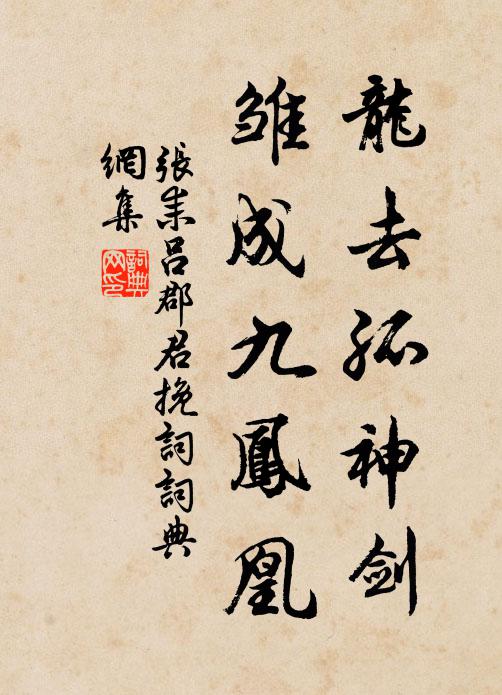 龍去孤神劍
雛成九鳳凰
張耒呂郡君挽詞詞典
網集
詞典
网印